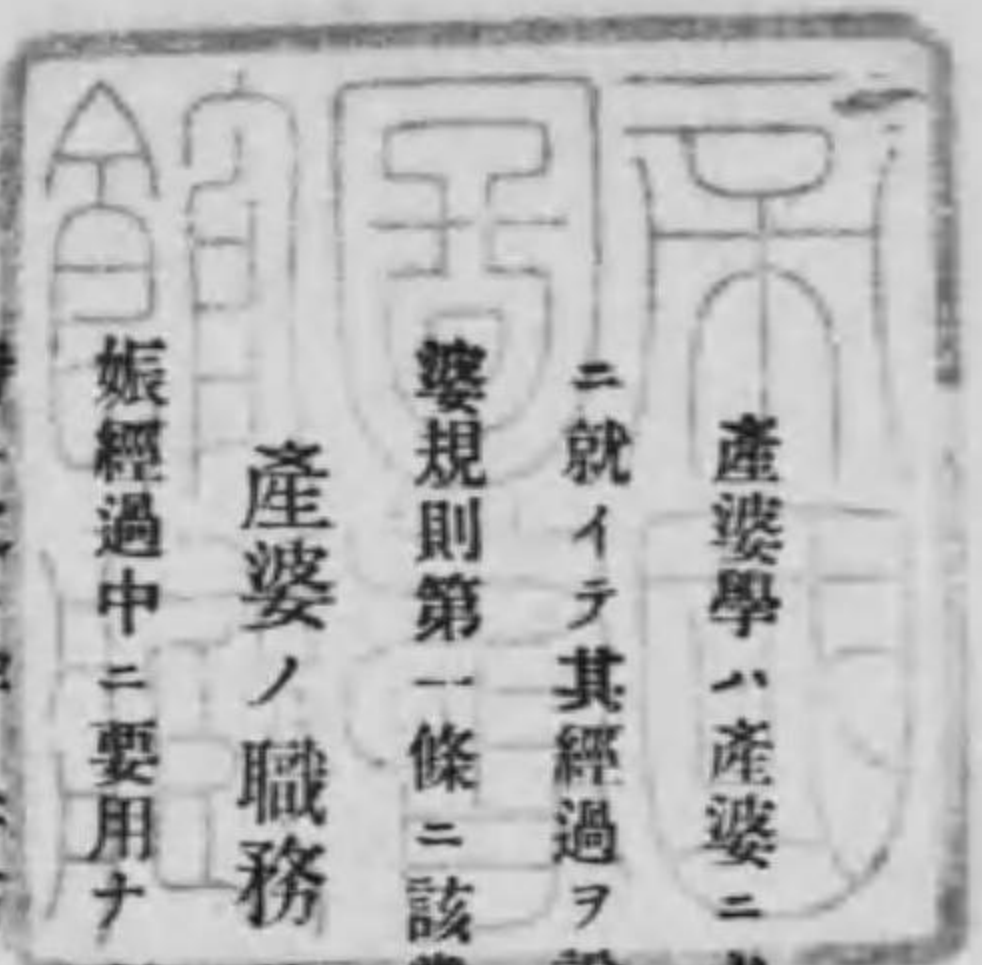 帝國
圖書
館藏
產婆學ハ產婆ニ
ニ就イテ其經過ヲ
婆規則第一條ニ該
產婆ノ職務
娠經過中ニ要用ナ